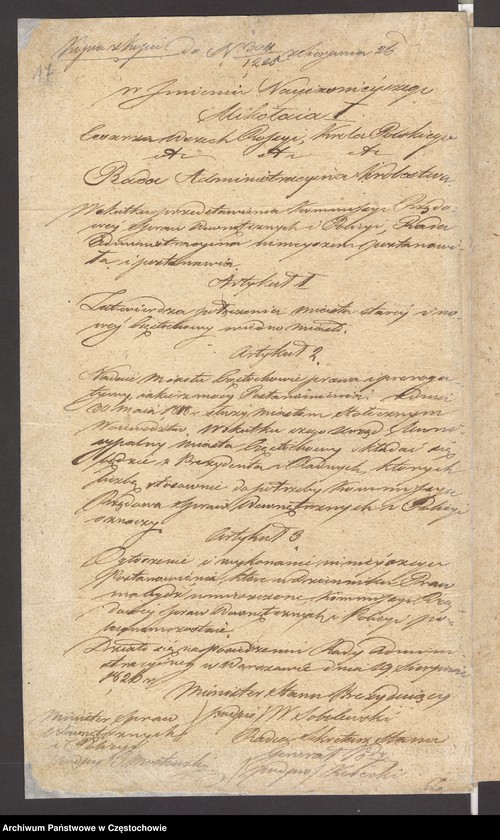 17
Kopia z kopii do Nr
w Imieniu Nayiaśnieyszego
Mikołaia I
Cesarza Wszech Rossyi, Króla Polskiego
etc etc etc
Rada Administracyina Królestwa
Na skutek przedstawienia Kommissyi Rządo
wey Spraw Wewnętrznych i Policyi, Rada
Administracyina ninieyszem postanowi
ła i postanawia
Artykuł 1
Zatwierdza połączenie miasta starey i no
wey Częstochowy w iedno miasto.
Artykuł 2.
Nadaie Miastu Częstochowie prawa i preroga
tywy, iakie z mocy Postanowienia
30 Maia 1818 r służą miastom Stołecznym
Woiewództw. W skutku czego Urząd Muni
cypalny miasta Częstochowy składać się
będzie z Prezydenta i Radnych, których
liczbę stosownie do potrzeby Kommissya
Rządowa Spraw Wewnętrznych i Policyi
oznaczy
Artykuł 3
Ogłoszenie i wykonanie ninieyszego
Postanowienia, które w dzienniku Praw
ma bydź umieszczone, Kommissyi Rzą
dowey Spraw Wewnętrznych i Policyi po
leconem zostaie.
Działo się na posiedzeniu Rady Admini
stracyiney w Warszawie dnia 19 Sierpnia
1826 r.
Minister Stanu Prezyduiący
(podpis) W Sobolewski
Minister Spraw
Wewnętrznych
i Policyi
(podpis) T Mostowski
Radca Sekretarz Stanu
Generał
(podpis) Kossecki
Archiwum Państwowe w Częstochowie